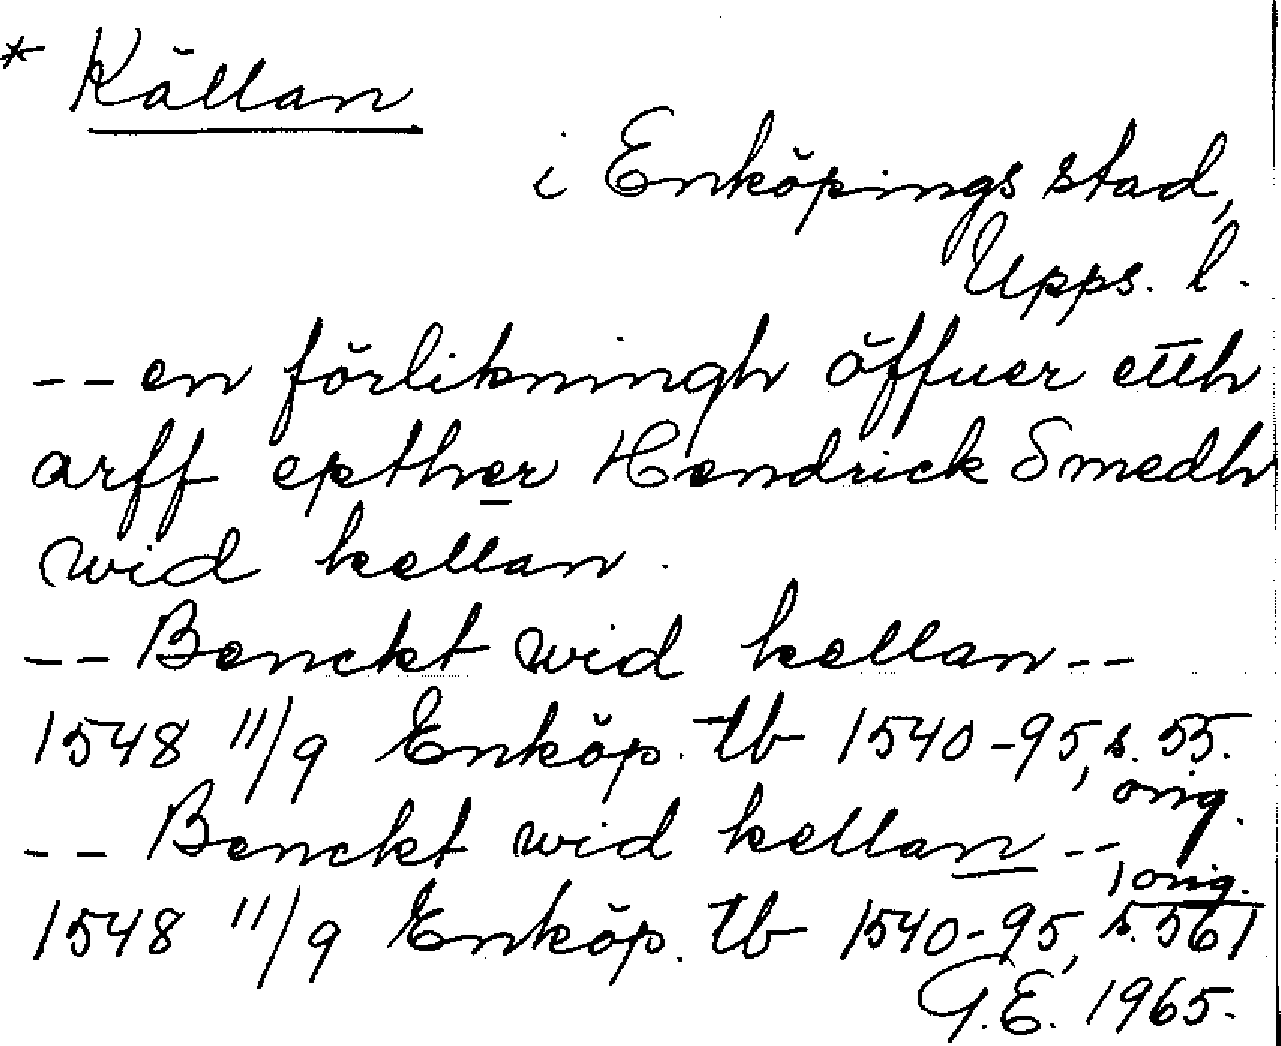 * Källan
i Enköpings stad,
Upps. l.
-- en förlikningh öffuer etth
arff epther Hendrick Smedh
wid kellan.
-- Benckt wid kellan --
1548 11/9 Enköp. tb 1540-95, s. 55.
orig.
-- Benckt wid kellan --
orig.
1548 11/9 Enköp. tb 1540-95, s. 56
G.E. 1965.